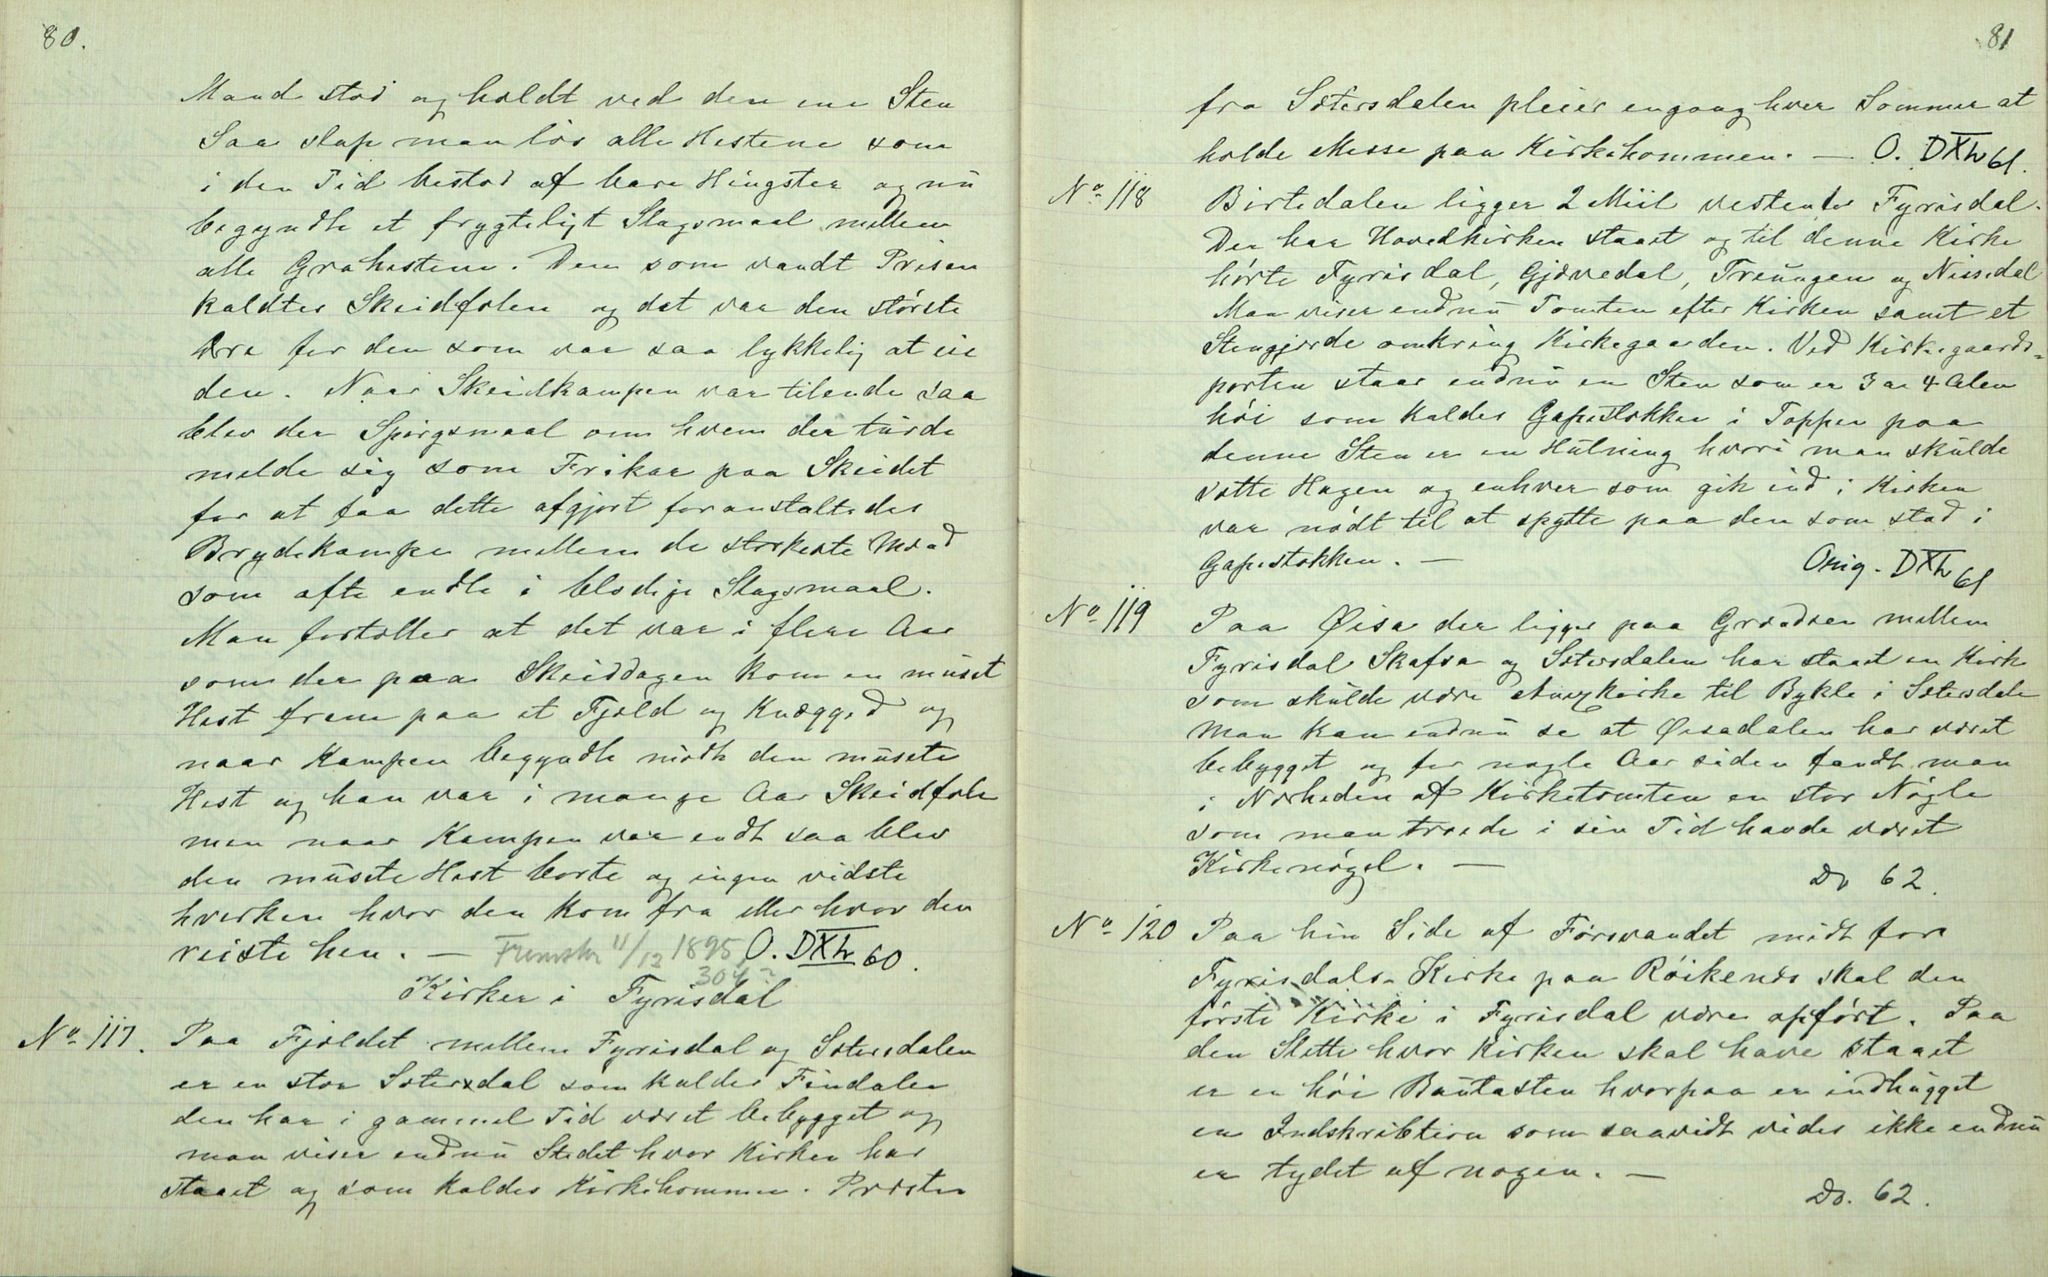 80.
Mand stod og holdt ved den ene Sten
Saa slap man lös alle Hestene som
i den Tid bestod af bare Hingster og nu
begyndte et frygteligt Slagsmaal mellem
alle Grahestene. Den som vandt Prisen
kaldtes Skeidfolen og det var den störste
Ære for den som var saa lykkelig at eie
den. Naar Skeidkampen var tilende saa
blev der Spörgsmaal om hvem der turde
melde sig som Frikar paa Skeidet
for at faa dette afgjort foranstaltedes
Brydekampe mellem de stærkeste Mænd
som ofte endte i blodige Slagsmaal.
Man fortæller at det var i flere Aar
som der paa Skeiddagen kom en muset
Hest frem paa et Fjæld og Knæggod og
naar Kampen begyndte mödte den musete
Hest og han var i mange Aar Skeidfole
men naar Kampen var endt saa blev
den musete Hest borte og ingen vidste
hverken hvor den kom fra eller hvor den
reiste hen. — 11/12 1895 O. DXV 60.
304
Kirker i Fyrisdal
No 117. Paa Fjældet mellem Fyrisdal og Sætersdalen
er en stor Sætersdal som kaldes Findalen
den har i gammel Tid været bebygget og
man viser endnu Stedet hvor Kirken har
staaet og som kaldes Kirkehommen. Præsten
81
fra Sætersdalen pleier engang hver Sommer at
holde Messe paa Kirkehommen. — O. DXV 61.
No 118 Birtedalen ligger 2 Miil vestenfor Fyrisdal.
Der har Hovedkirken staaet og til denne Kirke
hörte Fyrisdal, Gjövedal, Treungen og Nissedal
Man viser endnu Tomten efter Kirken samt et
Stengjærde omkring Kirkegaarden. Ved Kirkegaards-
porten staar endnu en Sten som er 3 a 4 Alen
höi som kaldes Gapestokken i Toppen paa
denne Sten er en Hulning hvori man skulde
sætte Hagen og enhver som gik ind i Kirken
var nödt til at spytte paa den som stod i
Gapestokken. — Orig. DXV 61
No 119 Paa Øisa der ligger paa Grændsen mellem
Fyrisdal Skafsa og Sætersdalen har staaet en Kirke
som skulde være Anexkirke til Bykle i Sætersdalen
Man kan endnu se at Øisadalen har været
bebygget og for nogle Aar siden fandt man
i Nærheden af Kirketomten en stor Nögle
som man troede i sin Tid havde været
Kirkenögel. —
Do 62.
No 120 Paa hin Side af Försvandet midt for
Fyrisdals Kirke paa Röikenes skal den
förste Kirke i Fyrisdal være opfört. Paa
den Slette hvor Kirken skal have staaet
er en höi Bautasten hvorpaa er indhugget
en Indskribtion som saavidt vides ikke endnu
er tydet af nogen. —
Do. 62.